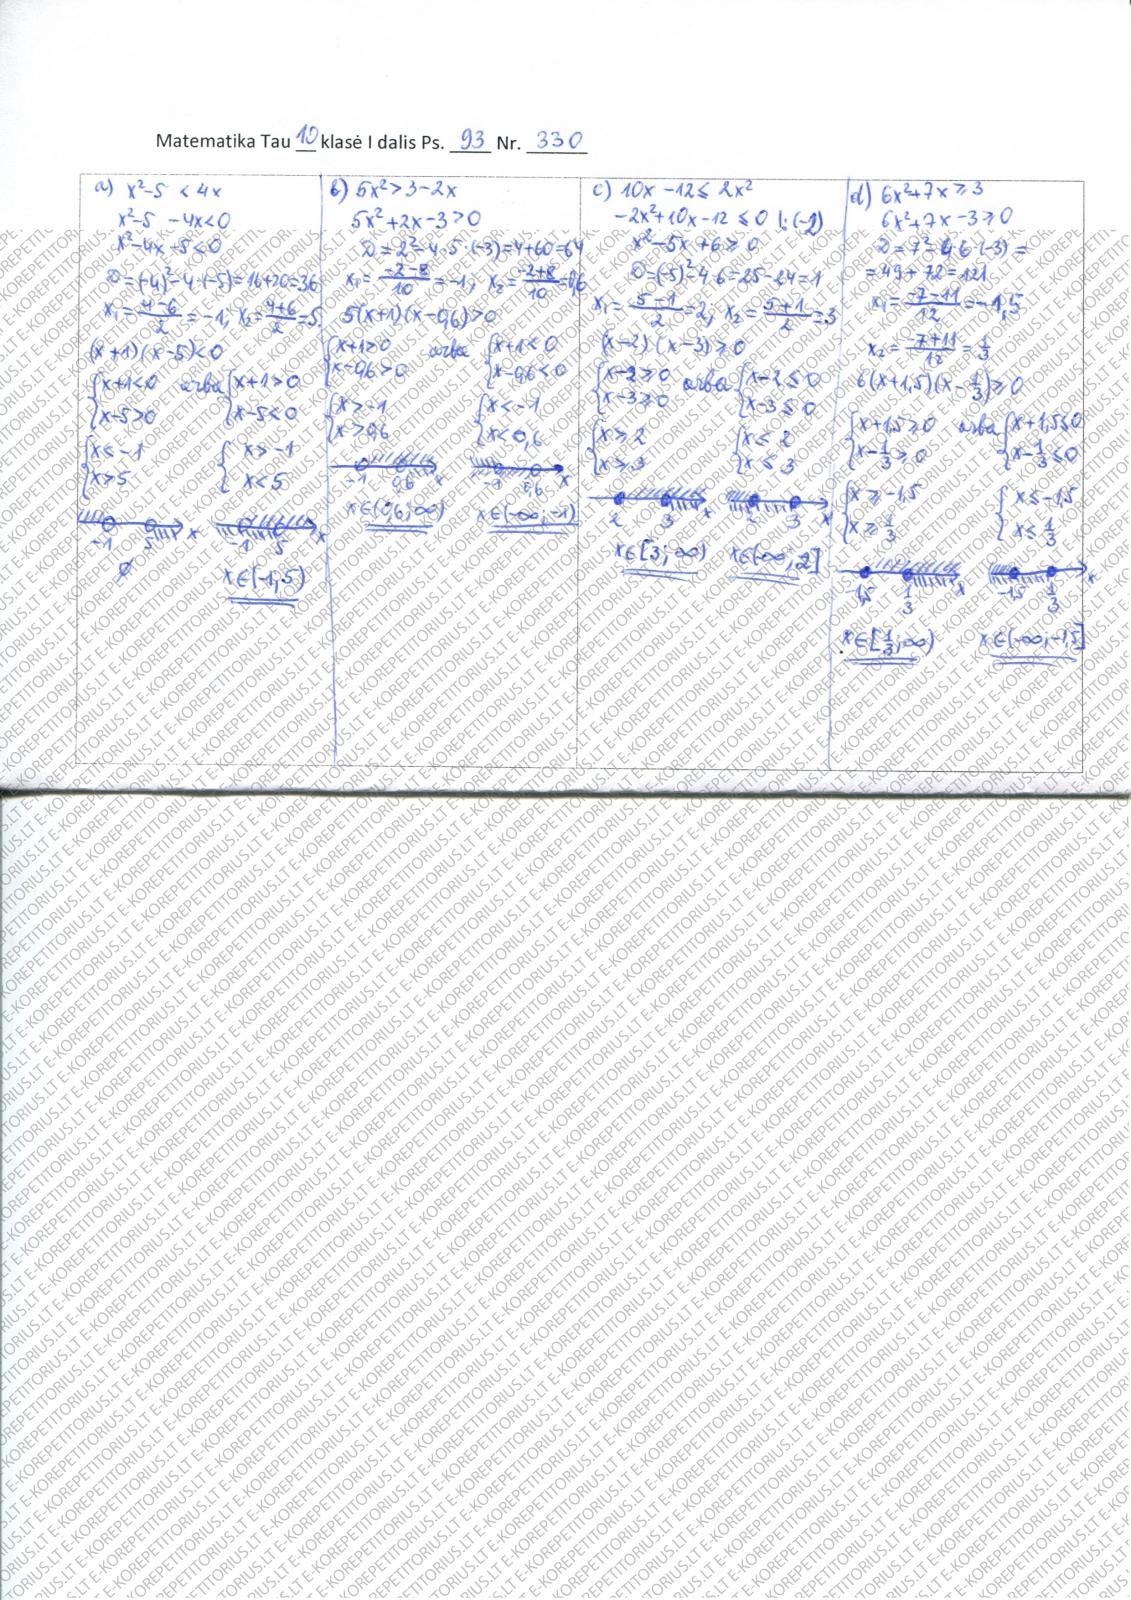 Matematika Tau 10 klasė I dalis Ps. 93 Nr. 330
a) x²-5 < 4x
x²-5 -4x<0
x²-4x-5<0
D=(-4)²-4·(-5)=16+20=36
x₁=(4-6)/2=-1; x₂=(4+6)/2=5
(x+1)(x-5)<0
{x+1<0 arba {x+1>0
{x-5>0 {x-5<0
{x<-1 {x>-1
{x>5 {x<5
-1 5 x -1 5 x
∅ x∈(-1;5)
b) 5x²>3-2x
5x²+2x-3>0
D=2²-4·5·(-3)=4+60=64
x₁=(-2-8)/10=-1; x₂=(-2+8)/10=0,6
5(x+1)(x-0,6)>0
{x+1>0 arba {x+1<0
{x-0,6>0 {x-0,6<0
{x>-1 {x<-1
{x>0,6 {x<0,6
-1 0,6 x -1 0,6 x
x∈(0,6;∞) x∈(-∞;-1)
c) 10x-12≤2x²
-2x²+10x-12≤0 |:(-2)
x²-5x+6≥0
D=(-5)²-4·6=25-24=1
x₁=(5-1)/2=2; x₂=(5+1)/2=3
(x-2)(x-3)≥0
{x-2≥0 arba {x-2≤0
{x-3≥0 {x-3≤0
{x≥2 {x≤2
{x≥3 {x≤3
2 3 x 2 3 x
x∈[3;∞) x∈(-∞;2]
d) 6x²+7x≥3
6x²+7x-3≥0
D=7²-4·6·(-3)=
=49+72=121
x₁=(-7-11)/12=-1,5
x₂=(-7+11)/12=1/3
6(x+1,5)(x-1/3)≥0
{x+1,5≥0 arba {x+1,5≤0
{x-1/3≥0 {x-1/3≤0
{x≥-1,5 {x≤-1,5
{x≥1/3 {x≤1/3
-1,5 1/3 x -1,5 1/3 x
x∈[1/3;∞) x∈(-∞;-1,5]
E-KOREPETITORIUS.LT